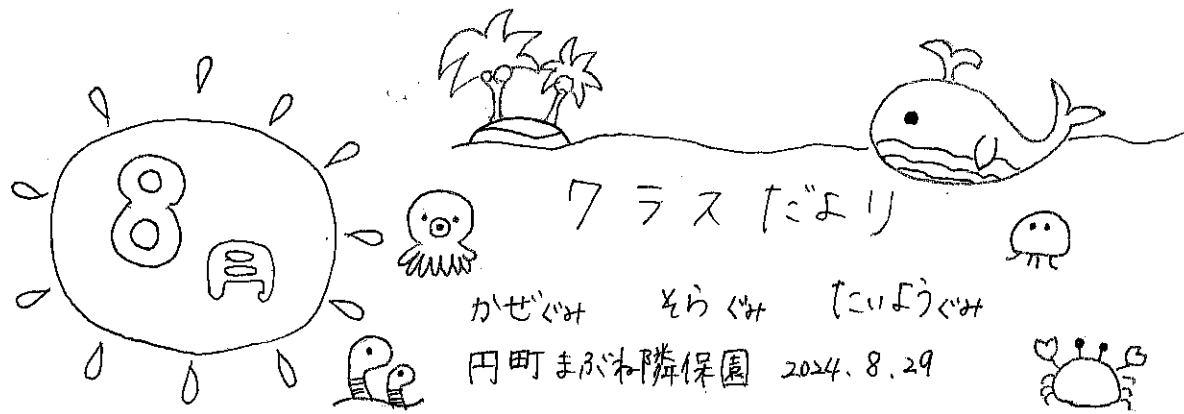 8月
クラスだより
かぜぐみ そらぐみ たいようぐみ
円町まぶね隣保園 2024.8.29